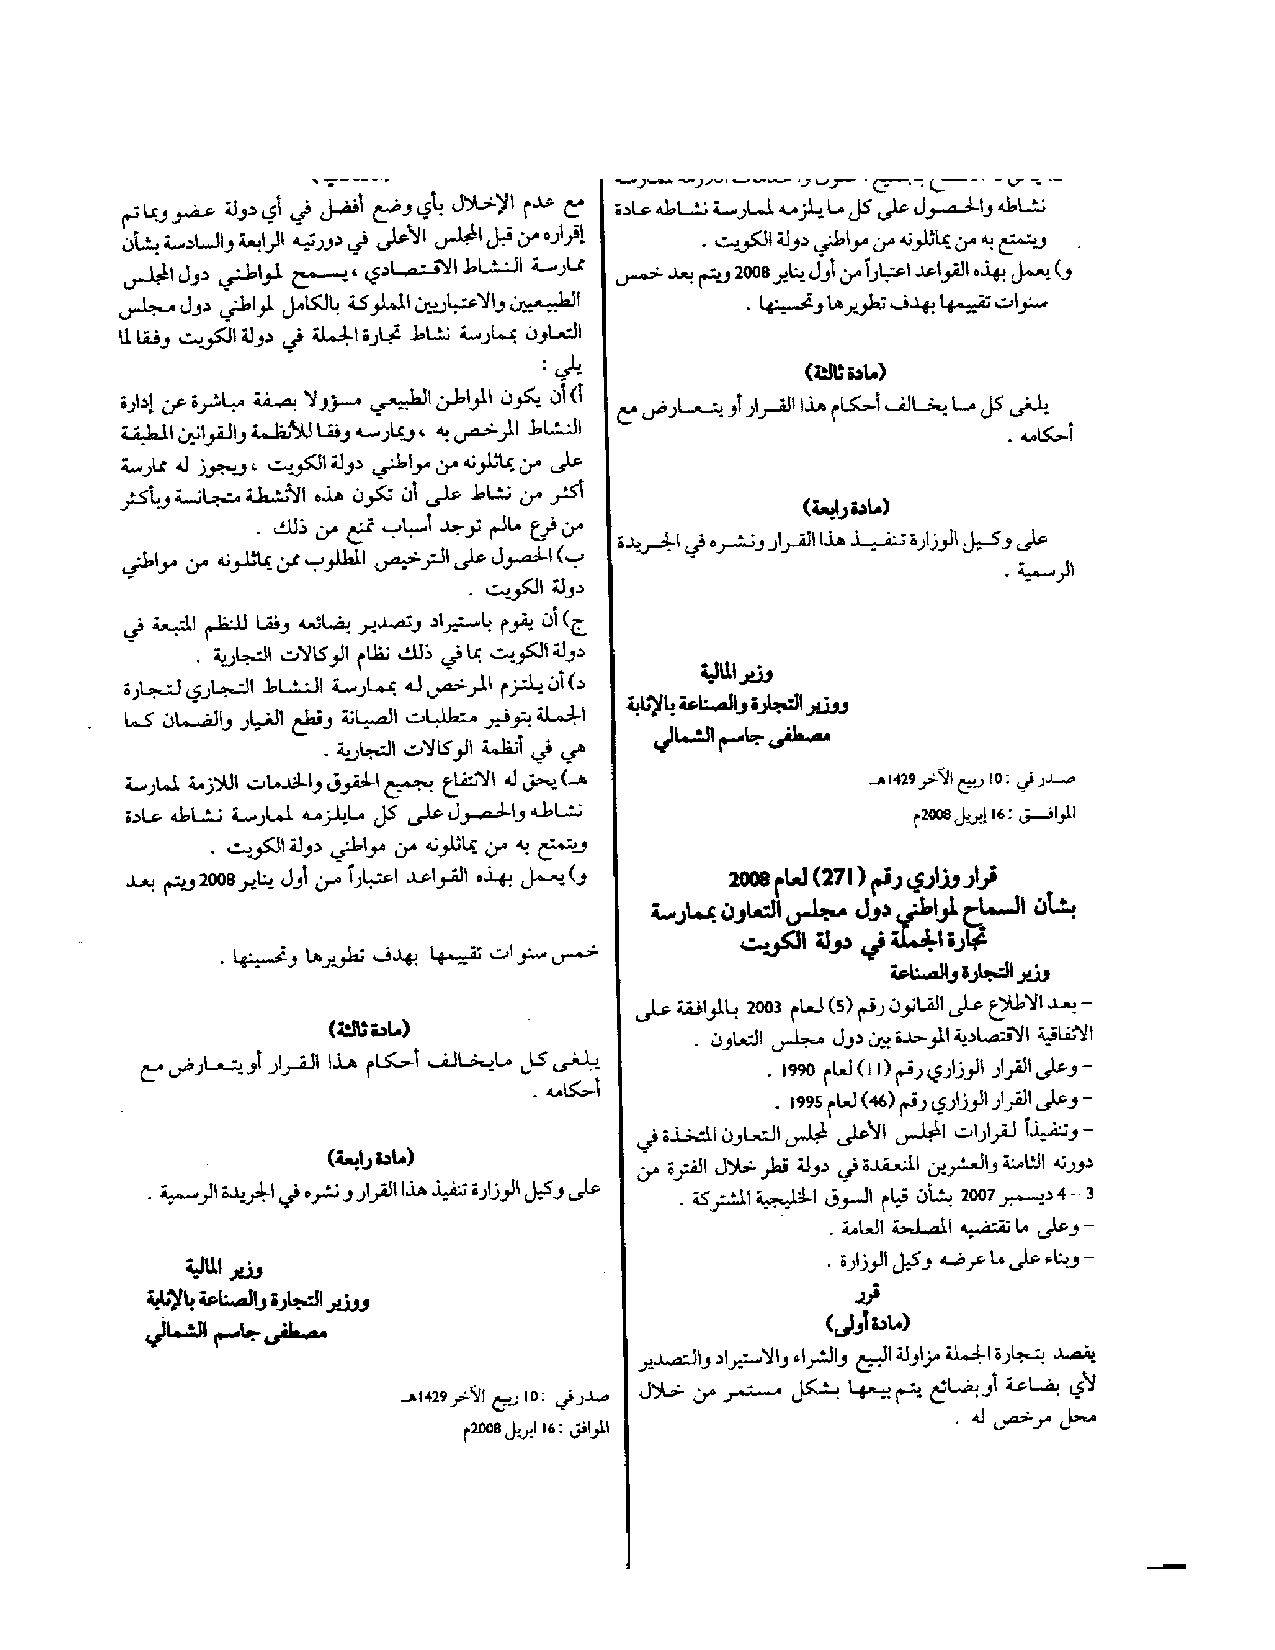 نشاطه والحصول على كل ما يلزمه لممارسة نشاطه عادة
ويتمتع به من يماثلونه من مواطني دولة الكويت .
و) يعمل بهذه القواعد اعتباراً من أول يناير 2008 ويتم بعد خمس
سنوات تقييمها بهدف تطويرها وتحسينها .
(مادة ثالثة)
يلغى كل ما يخالف أحكام هذا القرار أو يتعارض مع
أحكامه .
(مادة رابعة)
على وكيل الوزارة تنفيذ هذا القرار ونشره في الجريدة
الرسمية .
وزير المالية
ووزير التجارة والصناعة بالإنابة
مصطفى جاسم الشمالي
صدر في : 10 ربيع الآخر 1429هـ
الموافق : 16 إبريل 2008م
قرار وزاري رقم (271) لعام 2008
بشأن السماح لمواطني دول مجلس التعاون بممارسة
تجارة الجملة في دولة الكويت
وزير التجارة والصناعة
- بعد الاطلاع على القانون رقم (5) لعام 2003 بالموافقة على
الاتفاقية الاقتصادية الموحدة بين دول مجلس التعاون .
- وعلى القرار الوزاري رقم (11) لعام 1990 .
- وعلى القرار الوزاري رقم (46) لعام 1995 .
- وتنفيذاً لقرارات المجلس الأعلى لمجلس التعاون المتخذة في
دورته الثامنة والعشرين المنعقدة في دولة قطر خلال الفترة من
3 - 4 ديسمبر 2007 بشأن قيام السوق الخليجية المشتركة .
- وعلى ما تقتضيه المصلحة العامة .
- وبناء على ما عرضه وكيل الوزارة .
قرر
(مادة أولى)
يقصد بتجارة الجملة مزاولة البيع والشراء والاستيراد والتصدير
لأي بضاعة أو بضائع يتم بيعها بشكل مستمر من خلال
محل مرخص له .
مع عدم الإخلال بأي وضع أفضل في أي دولة عضو وبما تم
إقراره من قبل المجلس الأعلى في دورتيه الرابعة والسادسة بشأن
ممارسة النشاط الاقتصادي ، يسمح لمواطني دول المجلس
الطبيعيين والاعتباريين المملوكة بالكامل لمواطني دول مجلس
التعاون بممارسة نشاط تجارة الجملة في دولة الكويت وفقا لما
يلي :
أ) أن يكون المواطن الطبيعي مسؤولا بصفة مباشرة عن إدارة
النشاط المرخص به ، ويمارسه وفقا للأنظمة والقوانين المطبقة
على من يماثلونه من مواطني دولة الكويت ، ويجوز له ممارسة
أكثر من نشاط على أن تكون هذه الأنشطة متجانسة وبأكثر
من فرع مالم توجد أسباب تمنع من ذلك .
ب) الحصول على الترخيص المطلوب ممن يماثلونه من مواطني
دولة الكويت .
ج) أن يقوم باستيراد وتصدير بضائعه وفقا للنظم المتبعة في
دولة الكويت بما في ذلك نظام الوكالات التجارية .
د) أن يلتزم المرخص له بممارسة النشاط التجاري لتجارة
الجملة بتوفير متطلبات الصيانة وقطع الغيار والضمان كما
هي في أنظمة الوكالات التجارية .
هـ) يحق له الانتفاع بجميع الحقوق والخدمات اللازمة لممارسة
نشاطه والحصول على كل مايلزمه لممارسة نشاطه عادة
ويتمتع به من يماثلونه من مواطني دولة الكويت .
و) يعمل بهذه القواعد اعتباراً من أول يناير 2008 ويتم بعد
خمس سنوات تقييمها بهدف تطويرها وتحسينها .
(مادة ثالثة)
يلغى كل مايخالف أحكام هذا القرار أو يتعارض مع
أحكامه .
(مادة رابعة)
على وكيل الوزارة تنفيذ هذا القرار ونشره في الجريدة الرسمية .
وزير المالية
ووزير التجارة والصناعة بالإنابة
مصطفى جاسم الشمالي
صدر في : 10 ربيع الآخر 1429هـ
الموافق : 16 ابريل 2008م